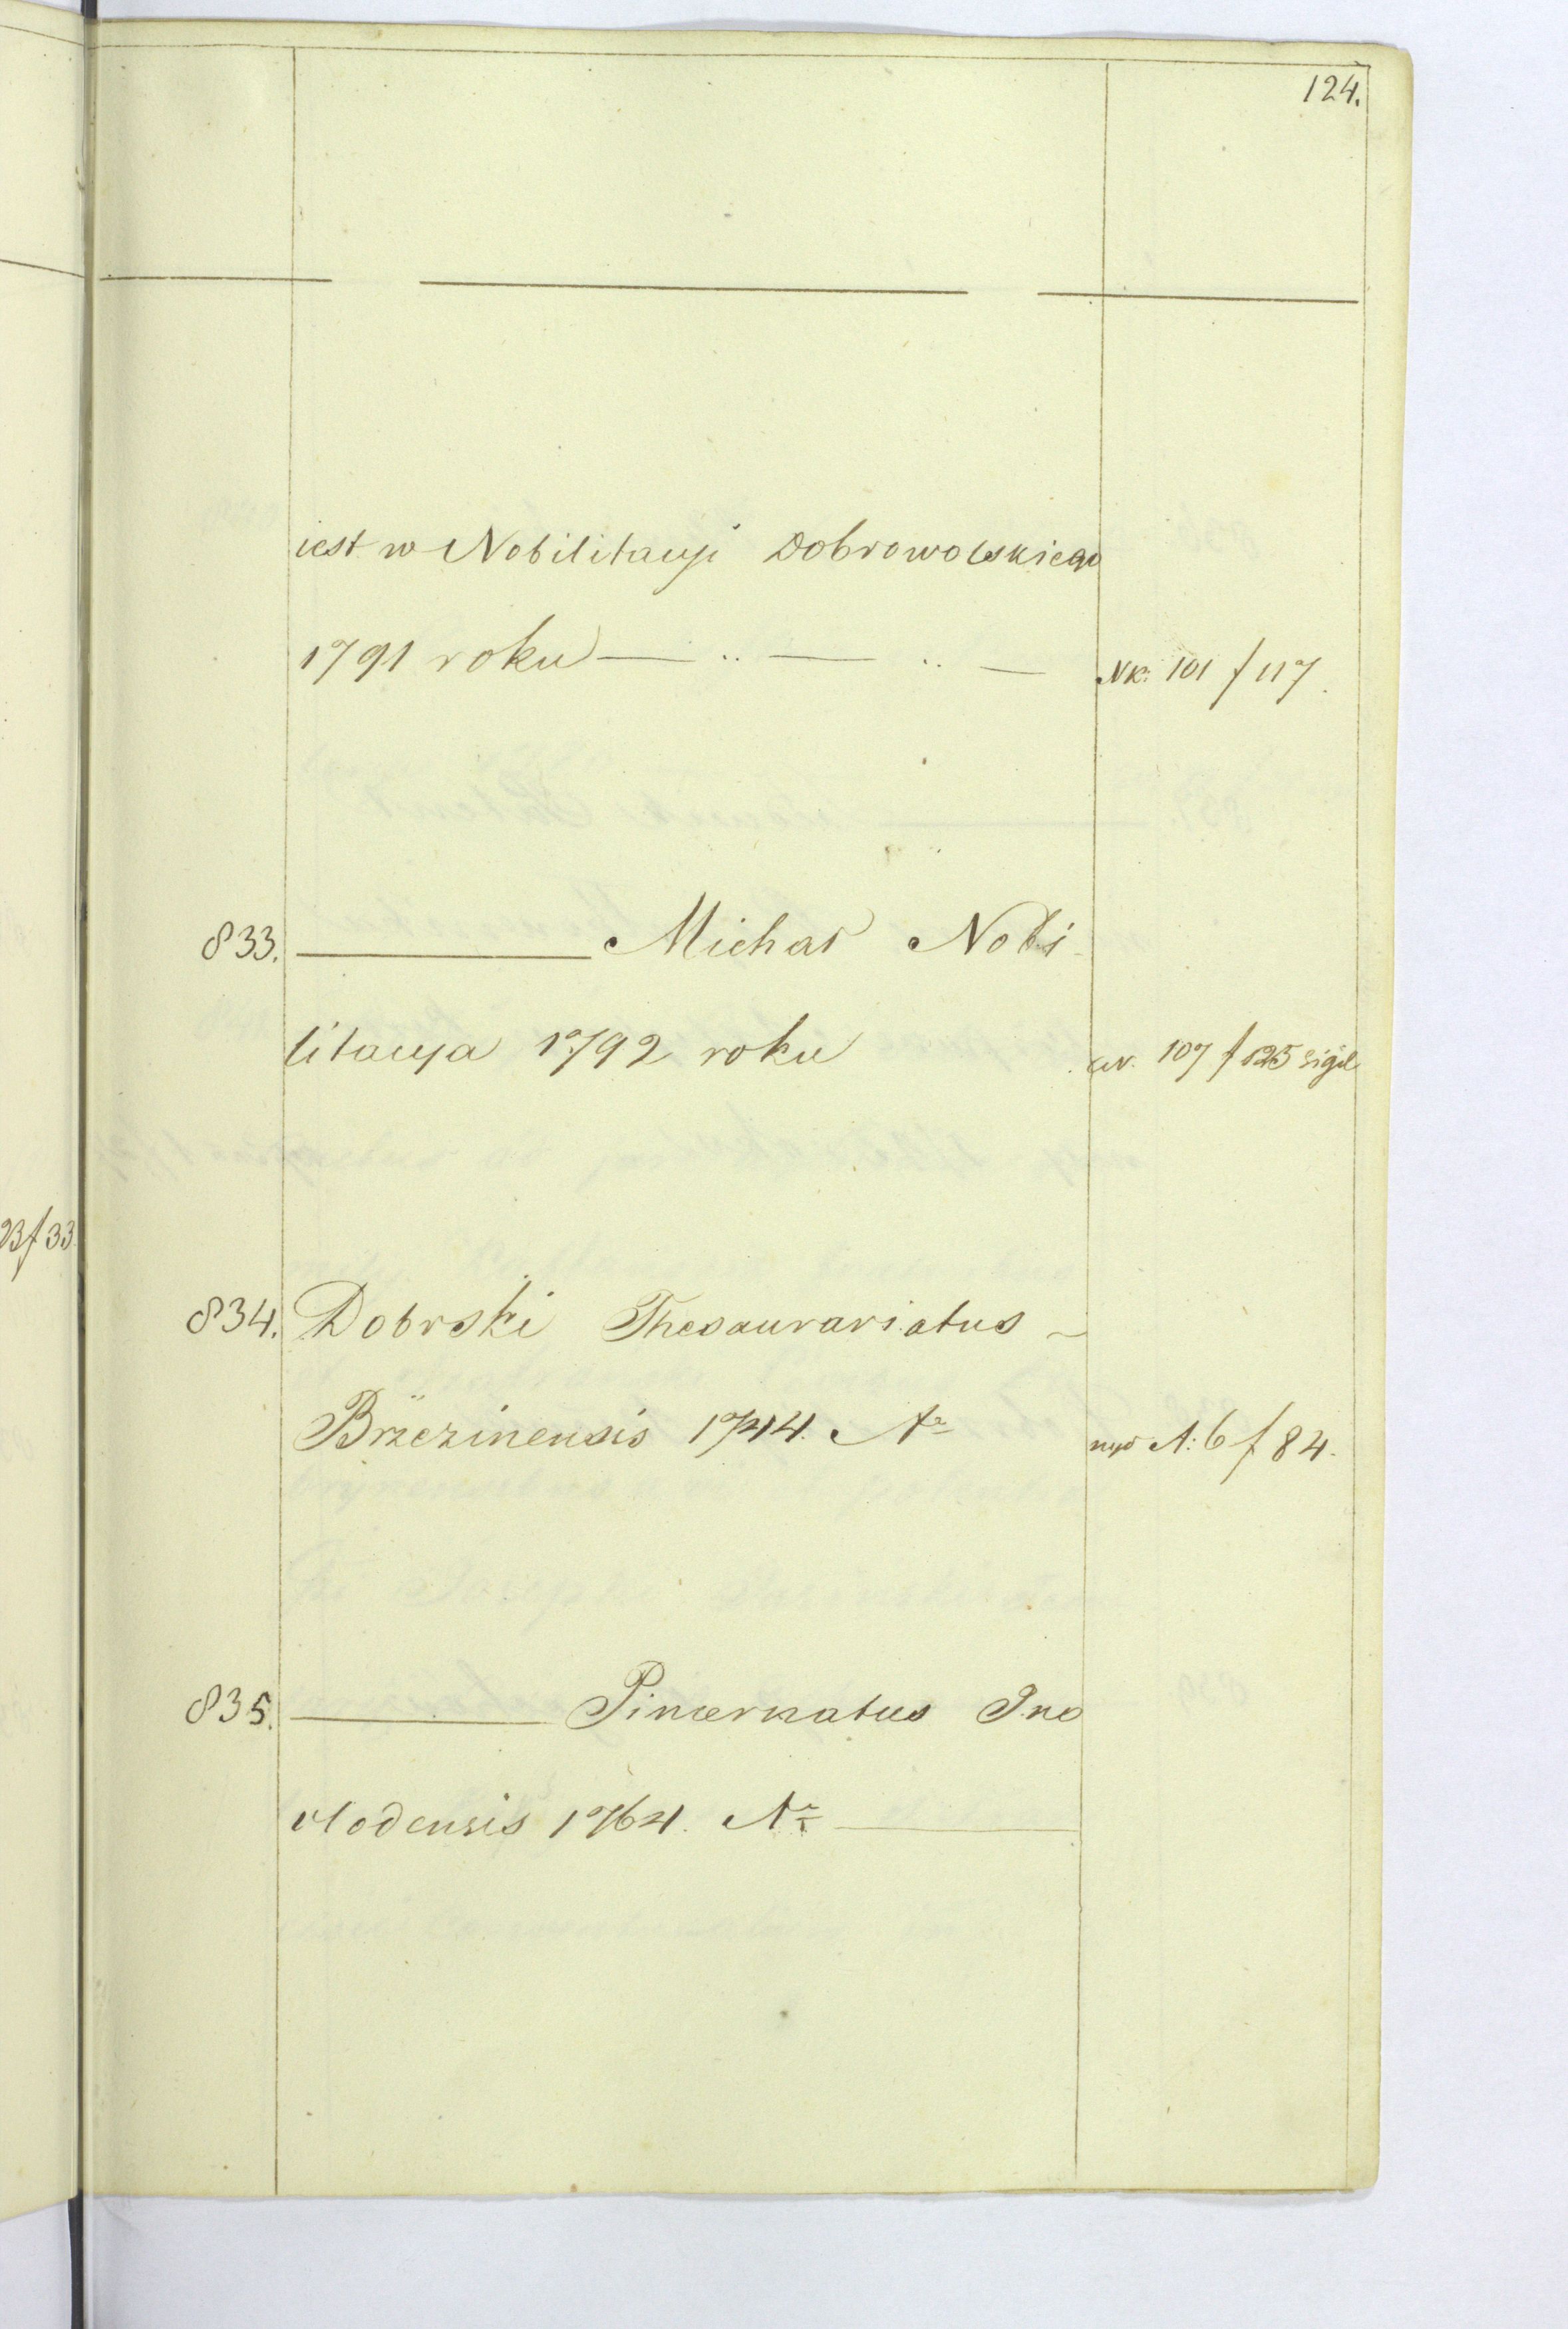 124.
iest w Nobilitacyi Dobrowolskiego
1791 roku — .. — .. — NK: 101 f 117.
833. ——— Michał Nobi-
litacya 1792 roku 107 f 125 Sigil
23 f 33
834. Dobrski Thesaurariatus ~
Brzezinensis 1744. A: 6 f 84.
835. ——— Pincernatus Ino
vlodensis 1764.